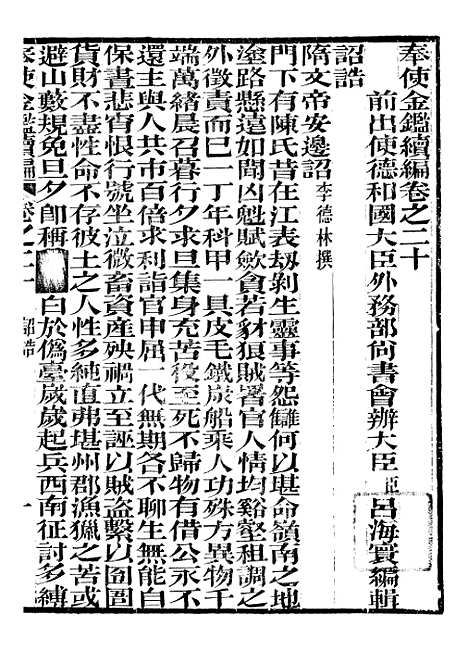 奉使金鑑續編卷之二十
前出使德和國大臣外務部尙書會辦大臣臣呂海寰編輯
詔誥
隋文帝安邊詔李德林撰
門下有陳氏昔在江表刼剝生靈事等怨讎何以堪命嶺南之地
塗路懸遠如聞凶魁賦歛貪若豺狼賊署官人情均谿壑租調之
外徵責而已一丁年科甲一具皮毛鐵炭船乘人功殊方異物千
端萬緒晨召暮行夕求旦集身充苦役至死不歸物有借公永不
還主與人共市百倍求利詣官申屈一代無期各不聊生無能自
保晝悲宵恨行號坐泣微畜資産殃禍立至誣以賊盜繫以囹圄
貨財不盡性命不存彼土之人性多純直弗堪州郡漁獵之苦或
避山藪規免旦夕卽稱 白於僞臺歲歲起兵西南征討多縛
奉使金鑑續編 卷之二十 詔誥 一